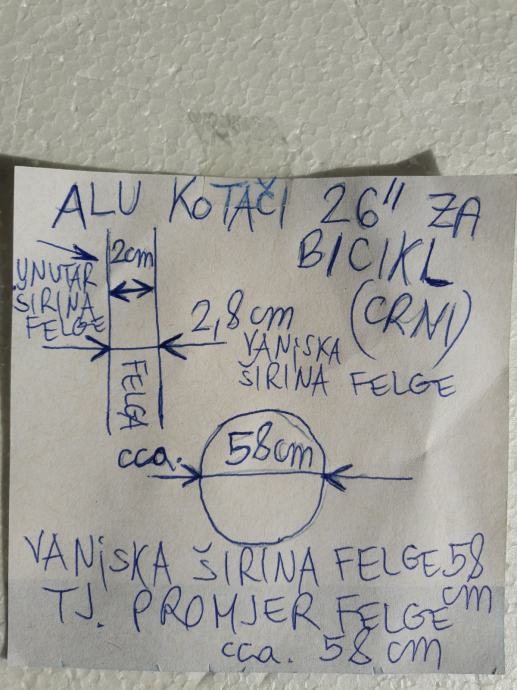 ALU KOTAČI 26" ZA
BICIKL
(CRNI)
2cm
UNUTAR
ŠIRINA
FELGE
2,8 cm
VANJSKA
ŠIRINA FELGE
FELGA
cca. 58cm
VANJSKA ŠIRINA FELGE 58
cm
TJ. PROMJER FELGE
cca. 58 cm